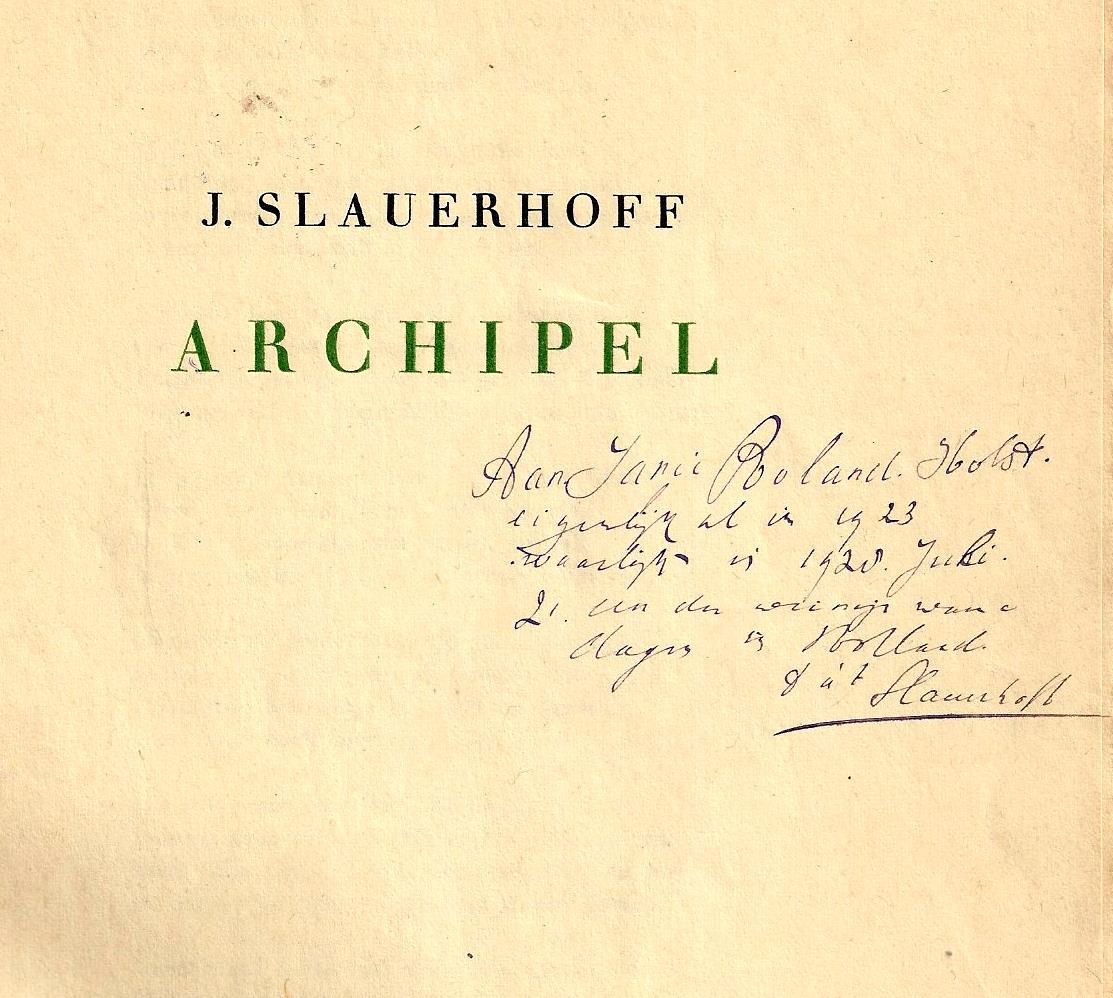 J. SLAUERHOFF
ARCHIPEL
Aan Janie Roland. Holst.
eigenlijk al in 1923
waarlijk in 1928. Juli.
21. een der weinige warme
dagen in Holland.
Slauerhoff